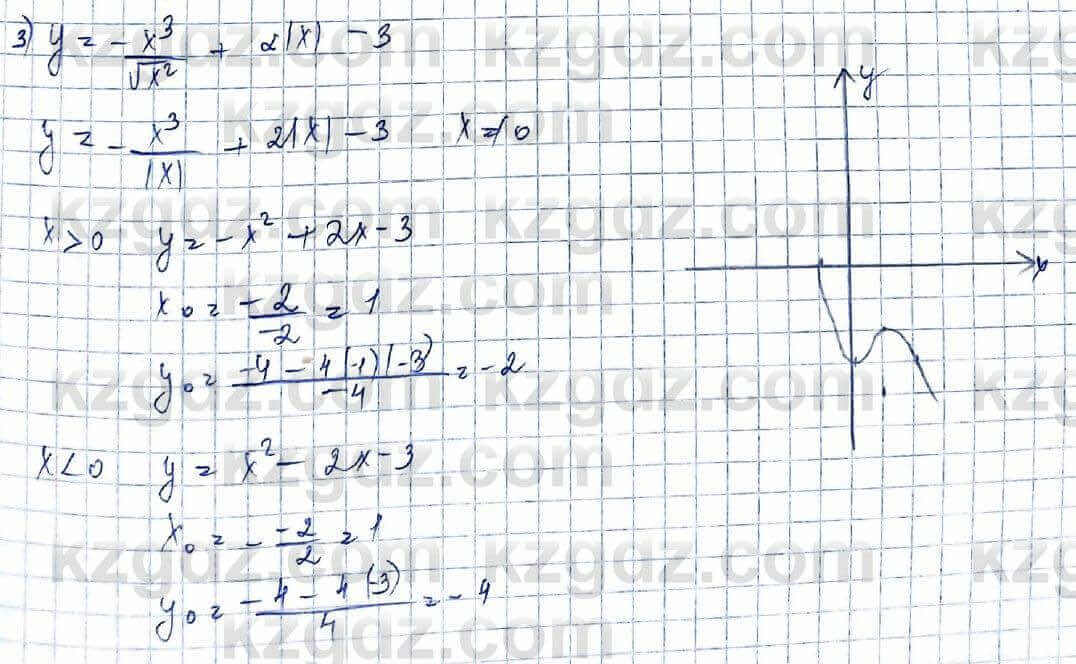 3) y = -x³/√x² + 2|x| - 3
y = -x³/|x| + 2|x| - 3 x ≠ 0
x > 0 y = -x² + 2x - 3
x₀ = -2/-2 = 1
y₀ = -4 - 4(-1)(-3)/-4 = -2
x < 0 y = x² - 2x - 3
x₀ = - -2/2 = 1
y₀ = -4 - 4(-3)/4 = -4
y
x
kzgdz.com kzgdz.com kzgdz.com
kzgdz.com
kzgdz.com kzgdz.com kzgdz.com
kzgdz.com
kzgdz.com kzgdz.com kzgdz.com
kzgdz.com
kzgdz.com kzgdz.com kzgdz.com
kzgdz.com